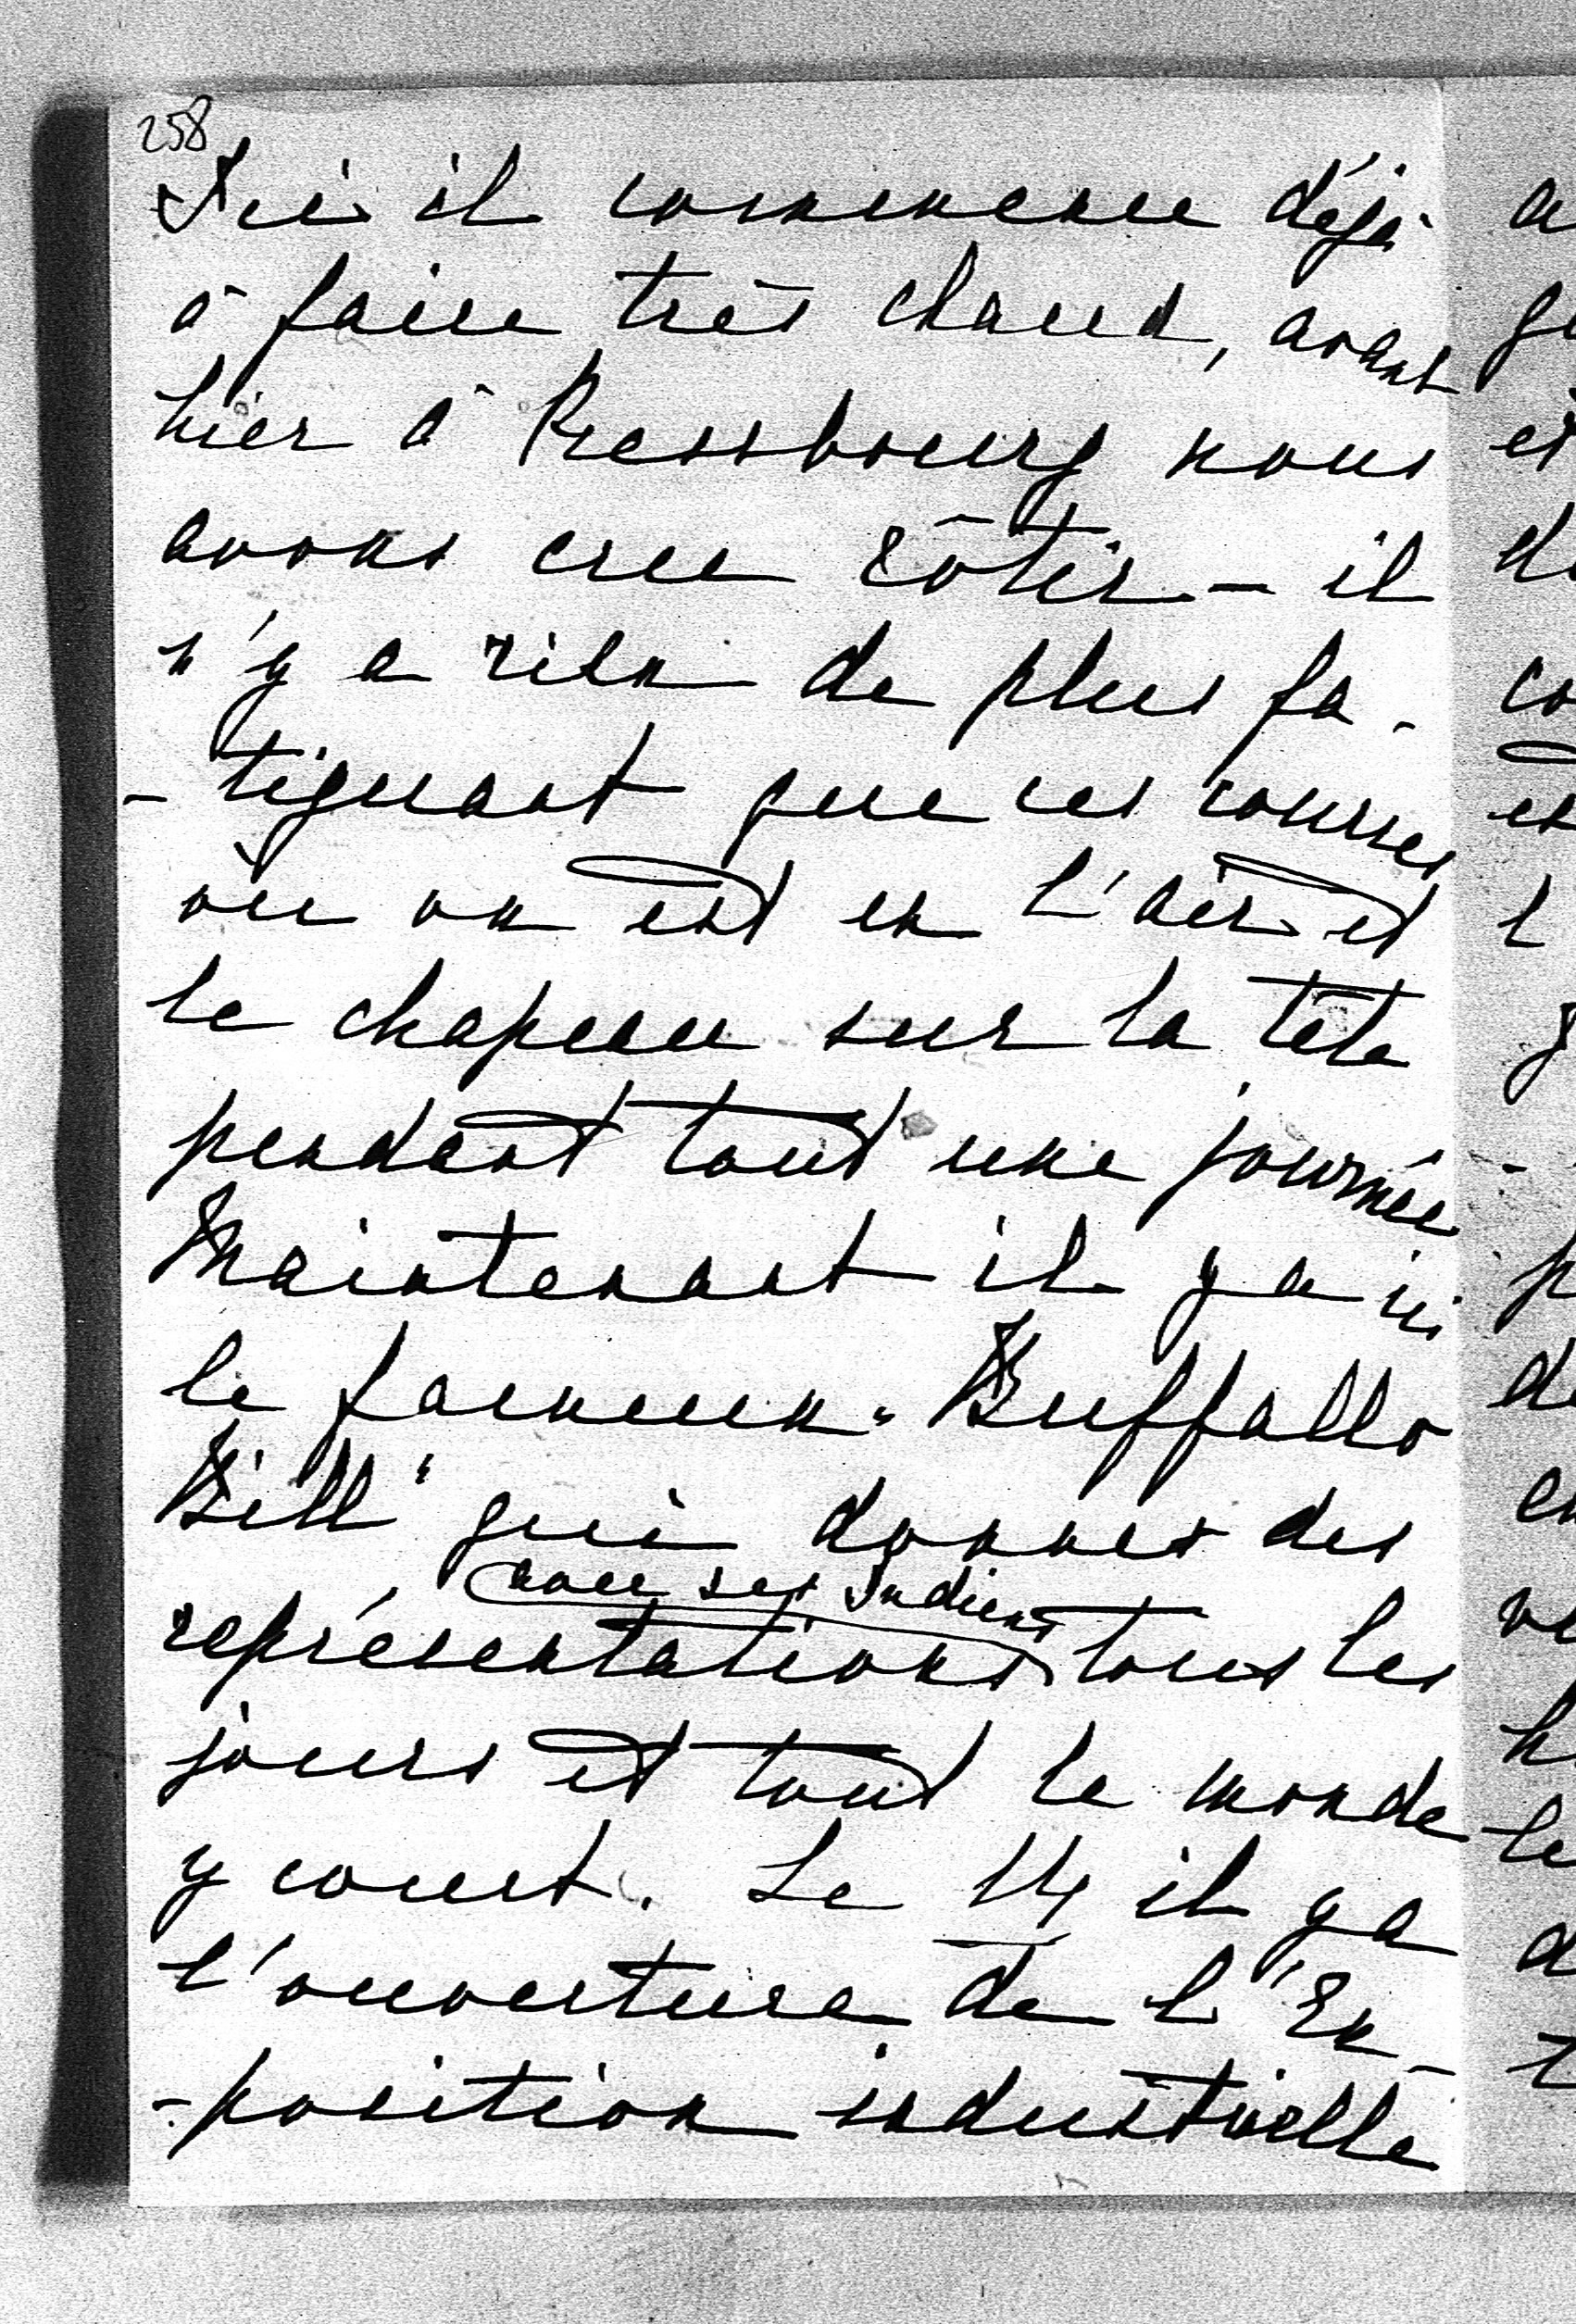 258
Ici il commence déjà
à faire très chaud, avant
hier à Pressbourg nous
avons cru rôtir – il
n'y a rien de plus fa-
-tiguant que ces courses
où on est en l'air et
le chapeau sur la tête
pendant tout une journée
Maintenant il y a ici
le fameux "Buffallo
Bill" qui donnes des
avec ses Indiens
représentations tous les
jours et tout le monde
y court. Le 14 il y a
l'ouverture de l'Ex-
-position industrielle